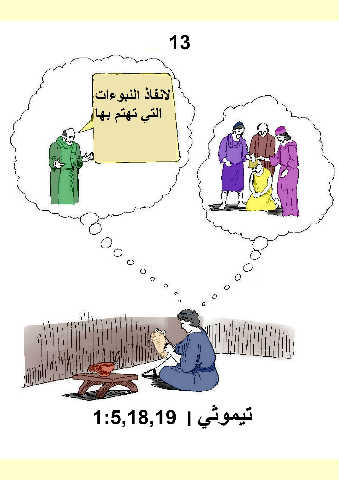 13
لانفاذ النبوءات
التي تهتم بها
تيموثي | 1:5,18,19